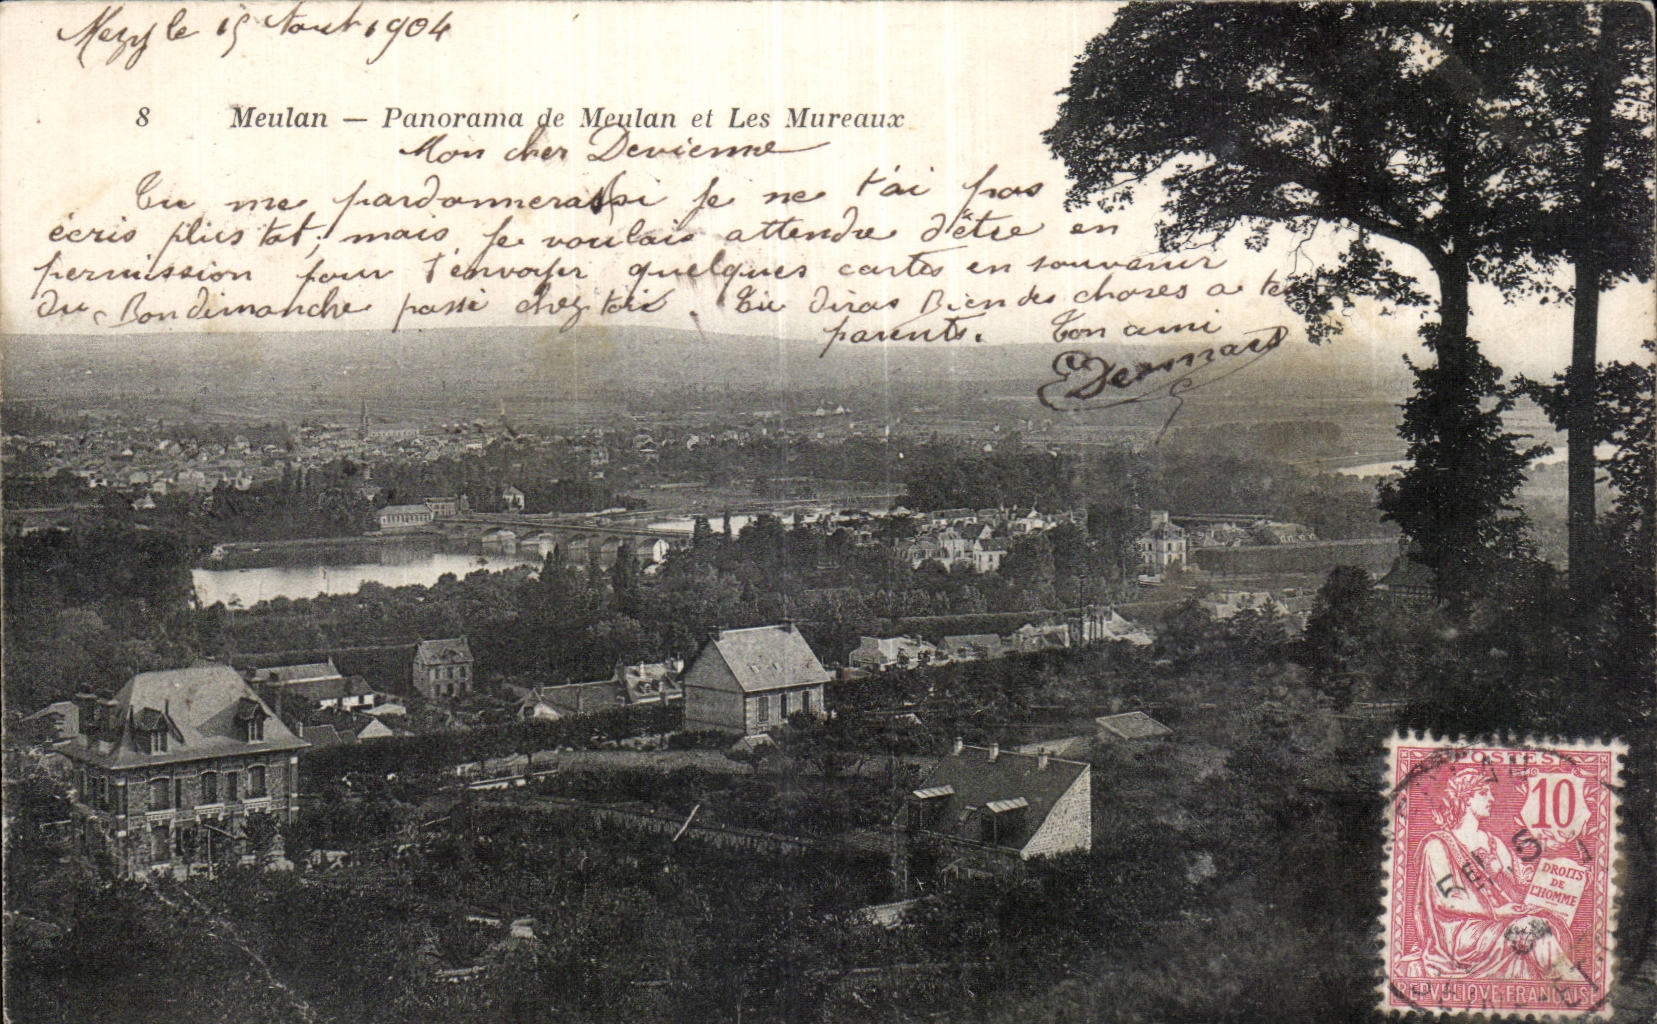 Mezy le 15 Aout 1904
8 Meulan — Panorama de Meulan et Les Mureaux
Mon cher Devienne
Tu me pardonneras si je ne t'ai pas
écris plus tot; mais je voulais attendre d'être en
permission pour t'envoyer quelques cartes en souvenir
du Bon dimanche passé chez toi. Tu diras Bien des choses a tes
parents. Ton ami
POSTES
10
DROITS
DE
L'HOMME
REPVBLIQVE FRANÇAISE